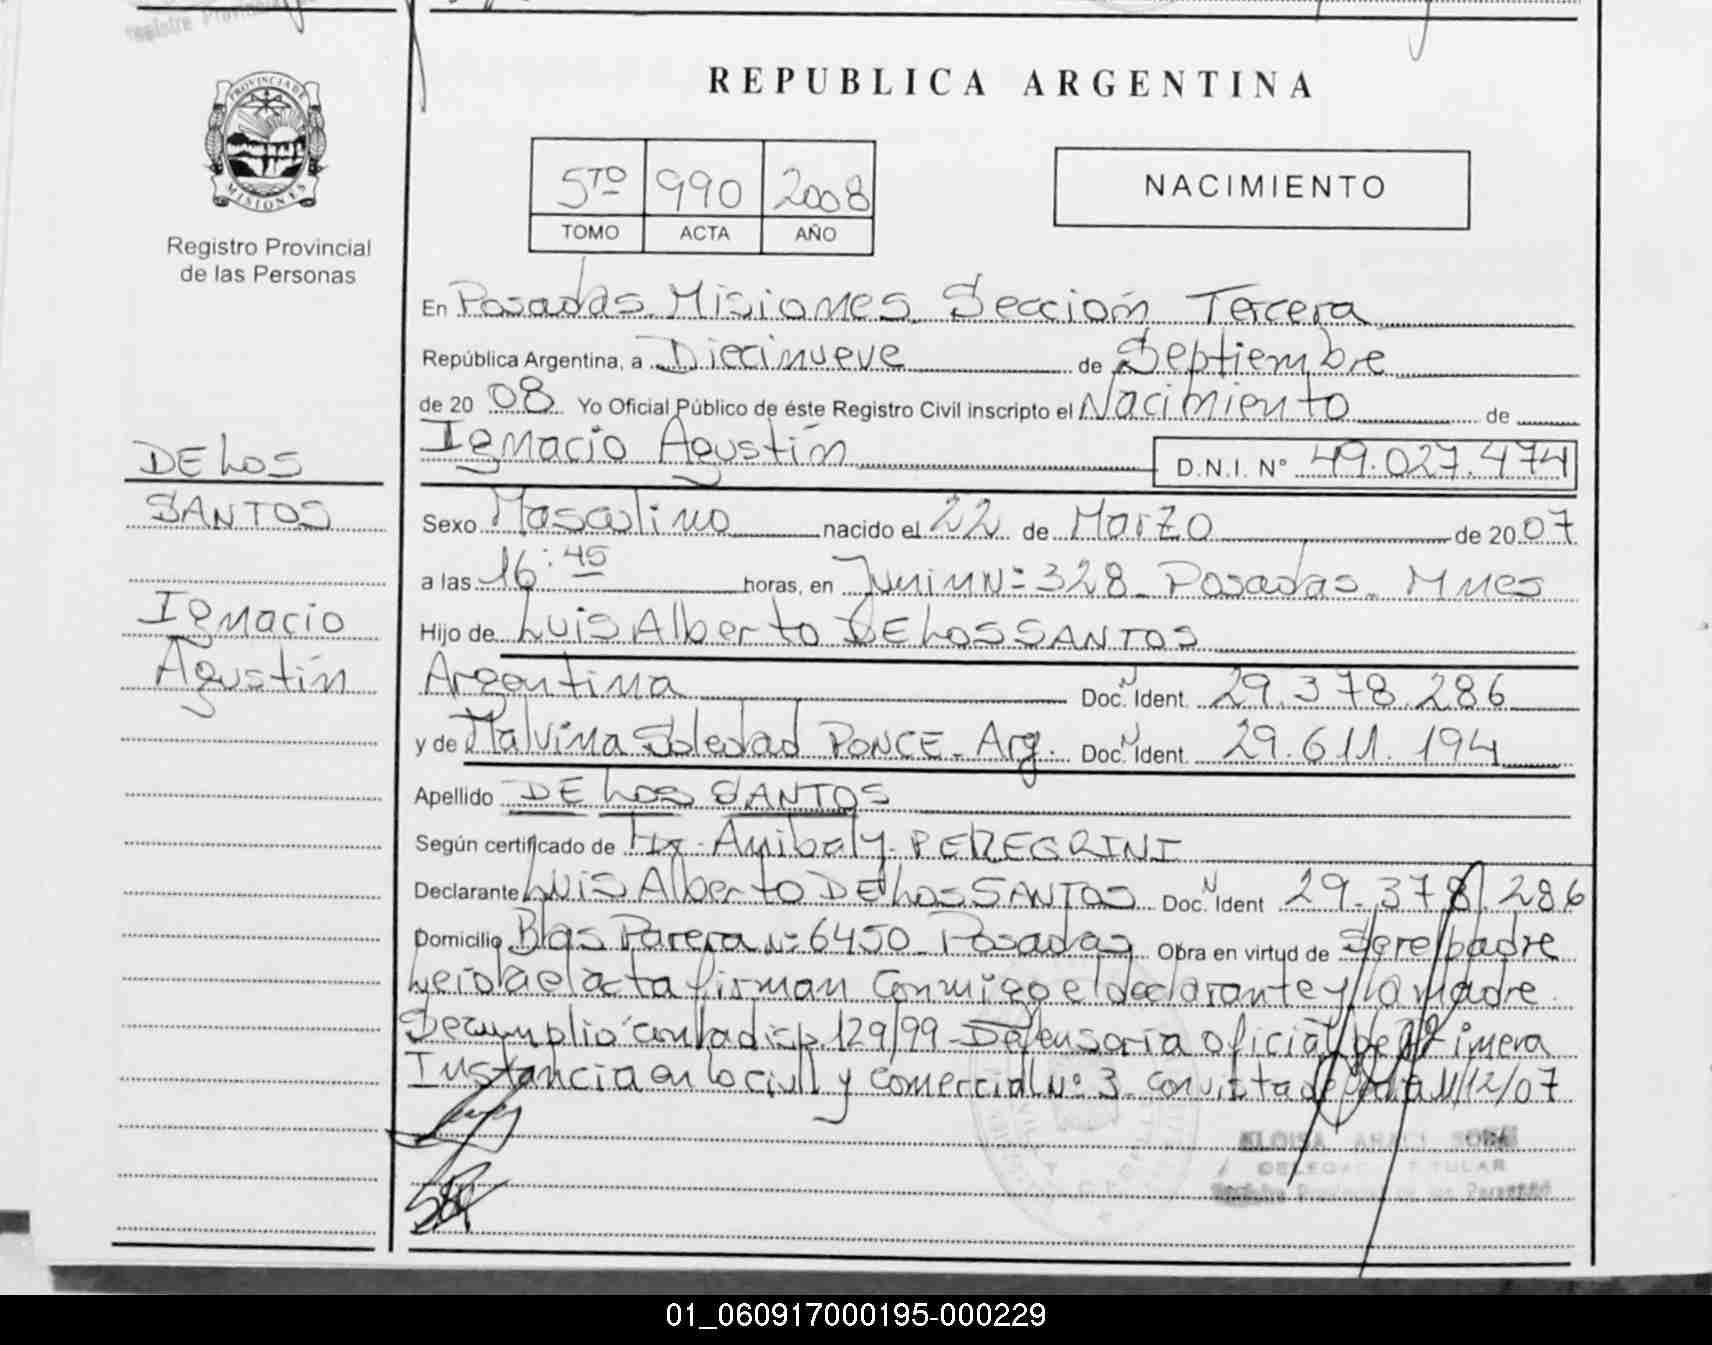 PROVINCIA DE
MISIONES
Registro Provincial
de las Personas
DE LOS
SANTOS
Ignacio
Agustín
REPUBLICA ARGENTINA
5TO 990 2008
TOMO ACTA AÑO
NACIMIENTO
En Posadas Misiones Sección Tercera
República Argentina, a Diecinueve de Septiembre
de 20 08 Yo Oficial Público de éste Registro Civil inscripto el Nacimiento de
Ignacio Agustín D.N.I. N° 49.027.474
Sexo Masculino nacido el 22 de Marzo de 20 07
a las 16:45 horas, en Junin Nº 328 _ Posadas _ Mnes
Hijo de Luis Alberto DE LOS SANTOS
Argentina Doc. N Ident. 29.378.286
y de Malvina Soledad PONCE - Arg. Doc. N Ident. 29.611.194
Apellido DE LOS SANTOS
Según certificado de Anibal y. PEREGRINI
Declarante Luis Alberto DE LOS SANTOS Doc. N Ident 29.378.286
Domicilio Blas Parera Nº 6450 _ Posadas Obra en virtud de Ser el padre
Leida el acta firman Conmigo el declarante y la madre.
Se cumplio con la disp. 129/99 - Defensoria oficial de Primera
Instancia en lo civil y comercial Nº 3 - con vista de 11/12/07
01_060917000195-000229